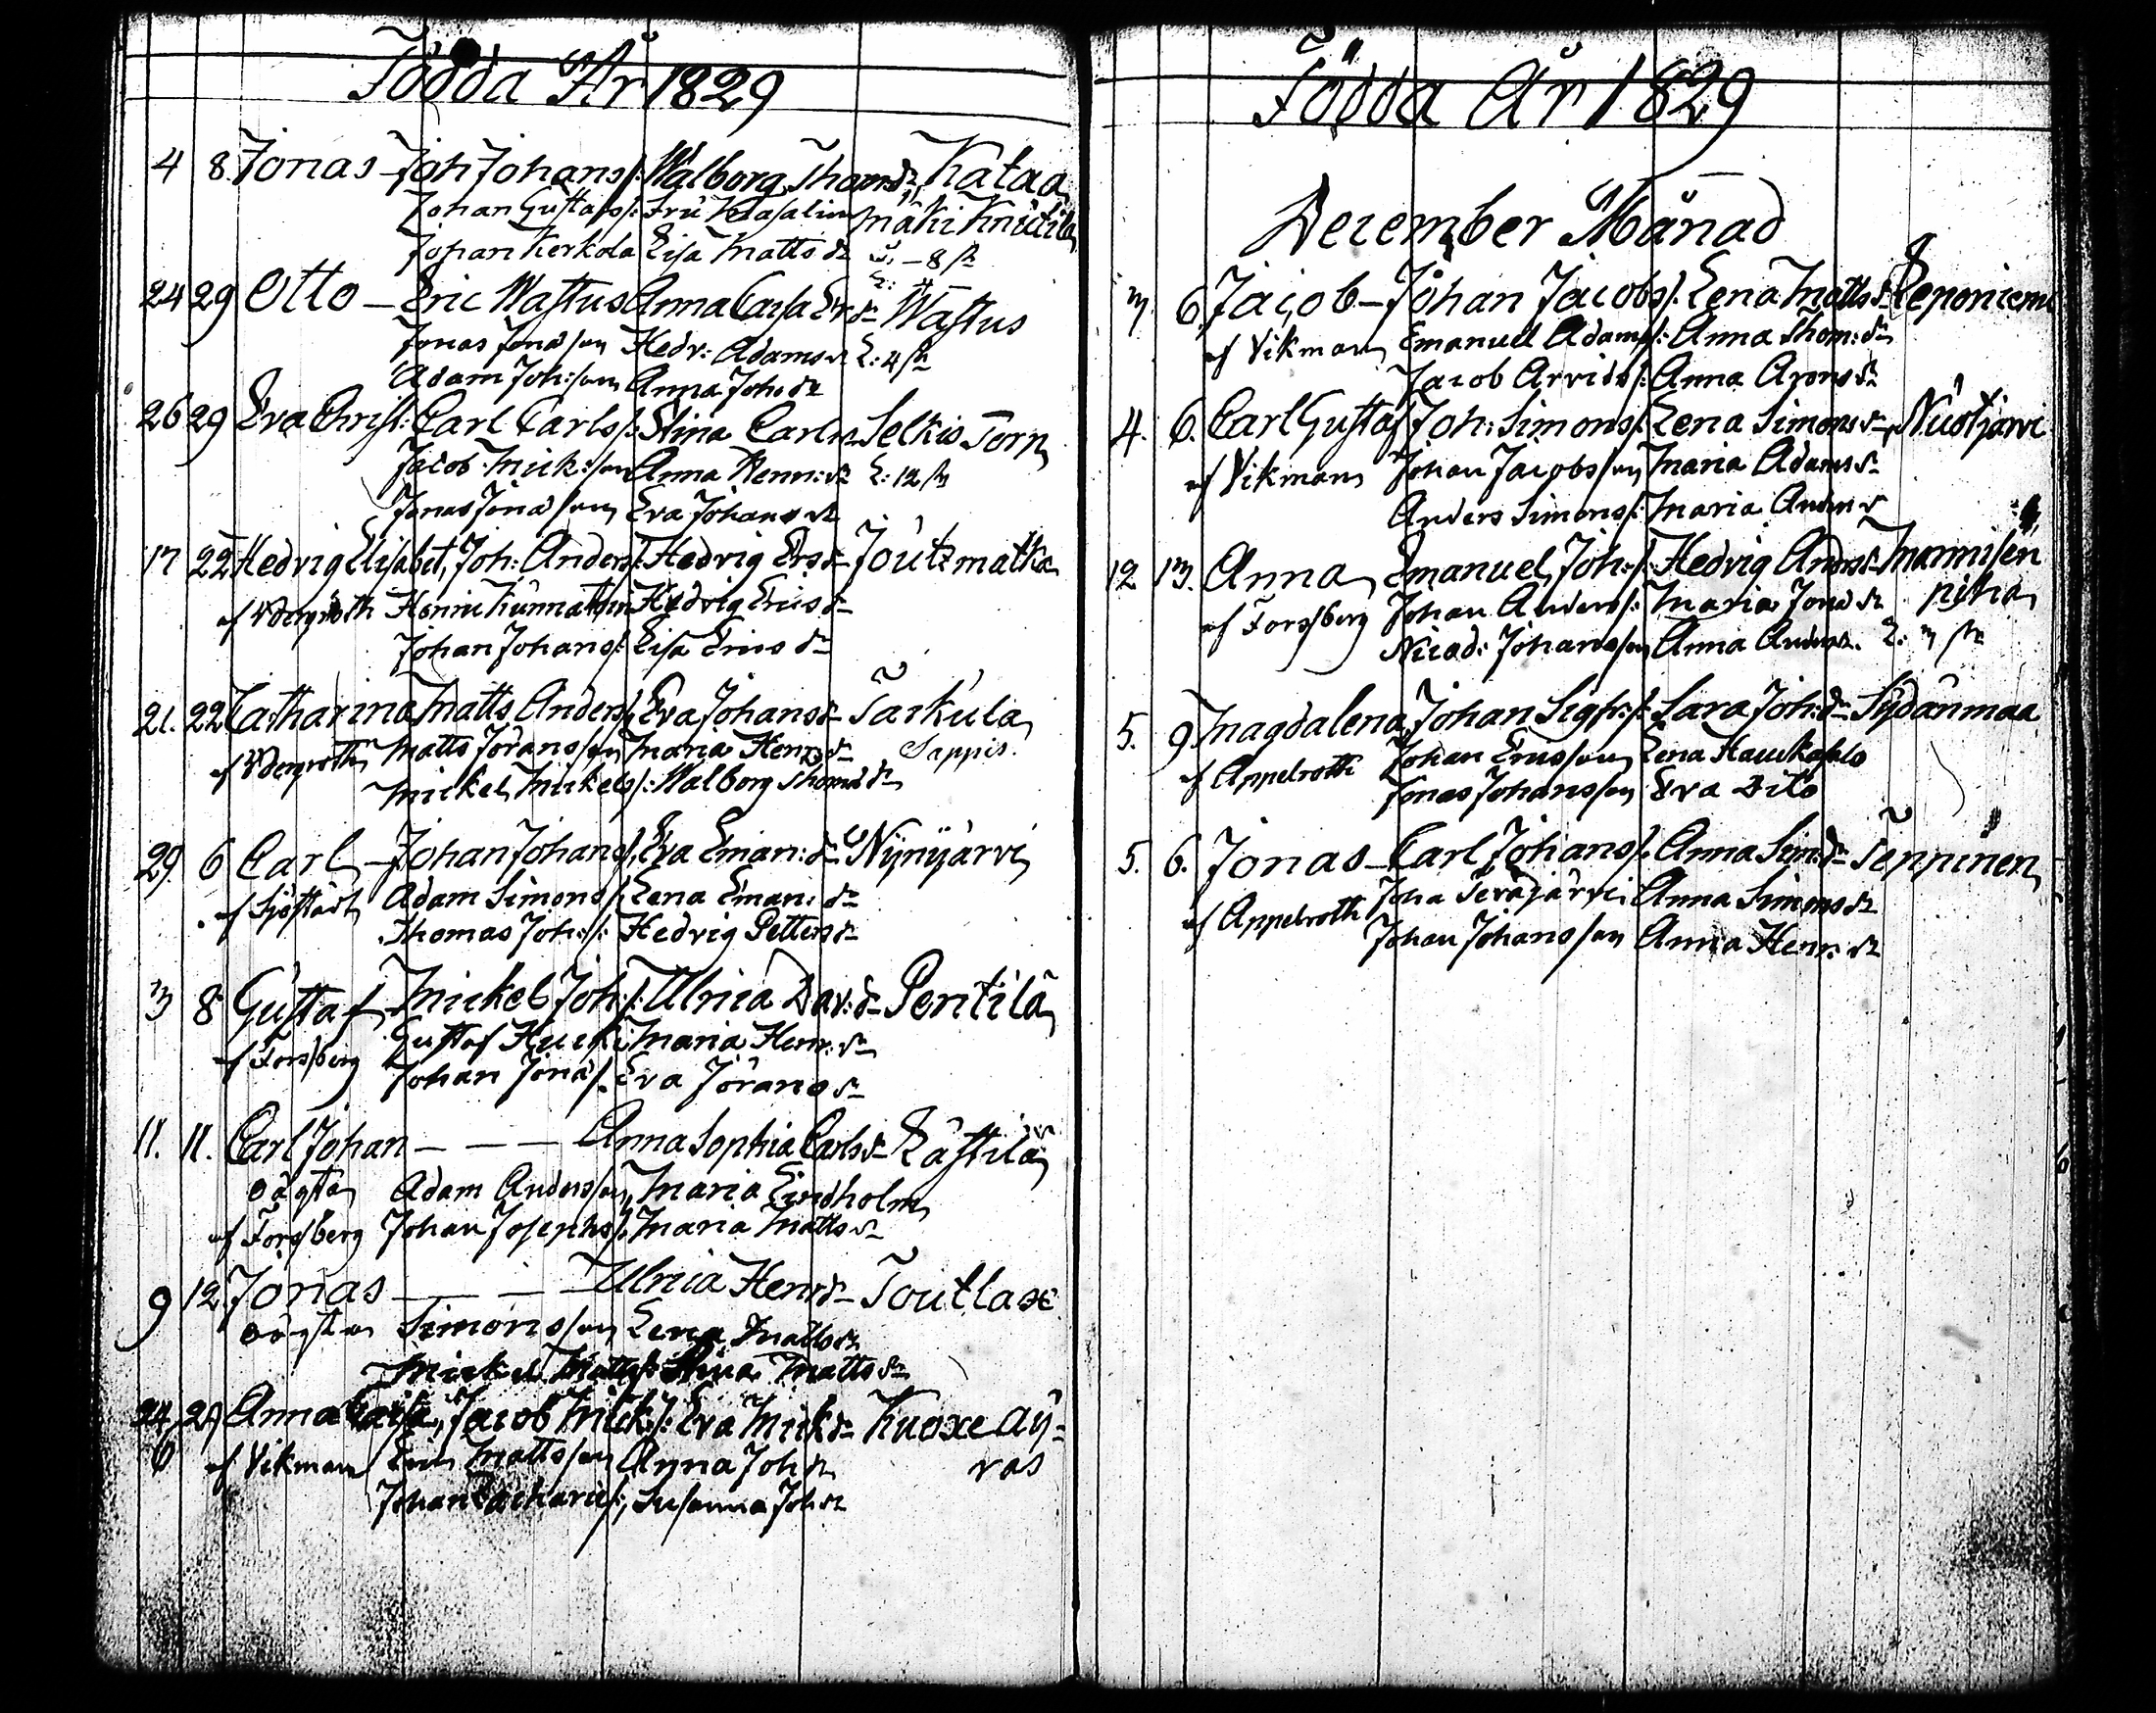 Födda År 1829
4 8. Jonas – Joh Johans/: Walborg Thomsdr Kataa
Johan Gustafs/: Fru mäki Knutila
Johan Kerkola Lisa Matts dr – 8 st
24 29 Otto – Eric Wastus Anna Caisa Er dr Wastus
Jonas Jonasson Hedv: Adams dr L: 4 st
Adam Joh:son Anna Joh: dr
26 29 Eva Christ: Carl Carls/: Stina Carls Selkis Torp
Jacob Mick:son Anna Henr: dr L: 12 st
Jonas Jonasson Eva Johans dr
17 22 Hedvig Elisabet, Joh: Anders/: Hedvig Ers dr Joutzmatka
af Hedvig Erics dr
Johan Johans/: Lisa Erics dr
21. 22 Catharina Matts Anders/: Eva Johans dr Tarkula
af Matts Jöransson Maria Henr dr Sappis.
Mickel Mickels/: Walborg Thomas dr
29. 6 Carl – Johan Johans/: Eva Eman: dr Nynyjärvi
af Sjöstädt Adam Simons/: Lena Eman: dr
Thomas Joh:/: Hedvig Petters dr
3 8 Gustaf Mickel Joh:/: Ulrica Dav: dr Pentilä
af Forsberg Gustaf Maria Henr: dr
Johan Jonas/: Eva Jörans dr
11. 11. Carl Johan – – – Anna Sophia Carls dr Lästilä
oägta Adam Andersson, Maria Lindholm
af Forsberg Johan Josephs/: Maria Matts dr
9 12 Jonas – – – Ulrica Henr dr Toutlax
oägta Simonsson Lena Matts dr
Mickel Matts/: Stina Matts dr
24 29 Anna Caisa, Jacob Mick:/: Eva Mick dr Kuoxeäy=
6 af Vikman Eric Mattsson Anna Joh dr räs
Johan Zacharis/: Susanna Joh dr
Födda År 1829
December Månad
3 6. Jacob – Johan Jacobs/: Lena Matts dr Reponiemi
af Vikman Emanuel Adams/: Anna Thom: dr
Jacob Arvids/: Anna Arons dr
4. 6. Carl Gustaf Joh: Simons/: Lena Simons dr Nuotjärvi
af Vikman Johan Jacobsson Maria Adams dr
Anders Simons/: Maria Anders dr
12 13. Anna Emanuel Joh:/: Hedvig Anders dr Mannisen
af Forsberg Johan Anders/: Maria Jonas dr piha
Nicod: Johansson Anna Anders dr. L: 3 st
5. 9 Magdalena, Johan Sigfr:/: Sara Joh: dr Sydänmaa
af Appelroth Johan Ericsson Lena Haukasalo
Jonas Johansson Eva Dito
5. 6. Jonas – Carl Johans/: Anna Sim: dr Seppinen
af Appelroth Joha Peräjärvi Anna Simons dr
Johan Johansson Anna Henr: dr